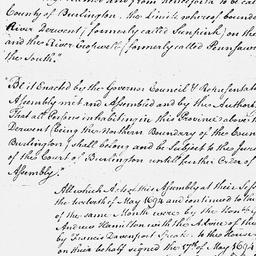 and from henceforth to be cal
County of Burlington, the Limits whereof bound
River Derwent (formerly called Sunpink) on the
and the River Crosswek (formerly called
the South."
"Be it Enacted by the Governor Council & Representat
Assembly mett and Assembled and by the Authori
That all Persons inhabeting in this Province above t
Derwent (being the Northern Boundary of the Coun
Burlington) shall belong and be Subject to the Juris
of the Court of Burlington untill further Order of
Assembly."
All which Acts of this Assembly at their Sess
the twelveth of May 1694 and continued to the
of the same Month were by the Hon:ble
Andrew Hamilton with the Advice of the
by Francis Davenport Speaker to this House
on their behalf signed the 17th of May 1694